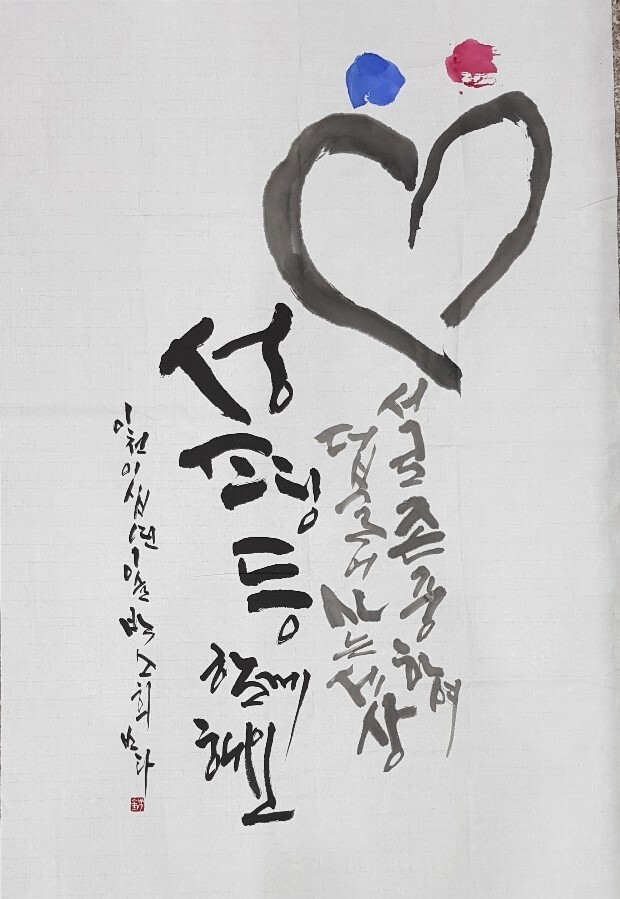 서로 존중하며
더불어 사는 세상
성평등 함께 해요
이천이십년 박소희 쓰다